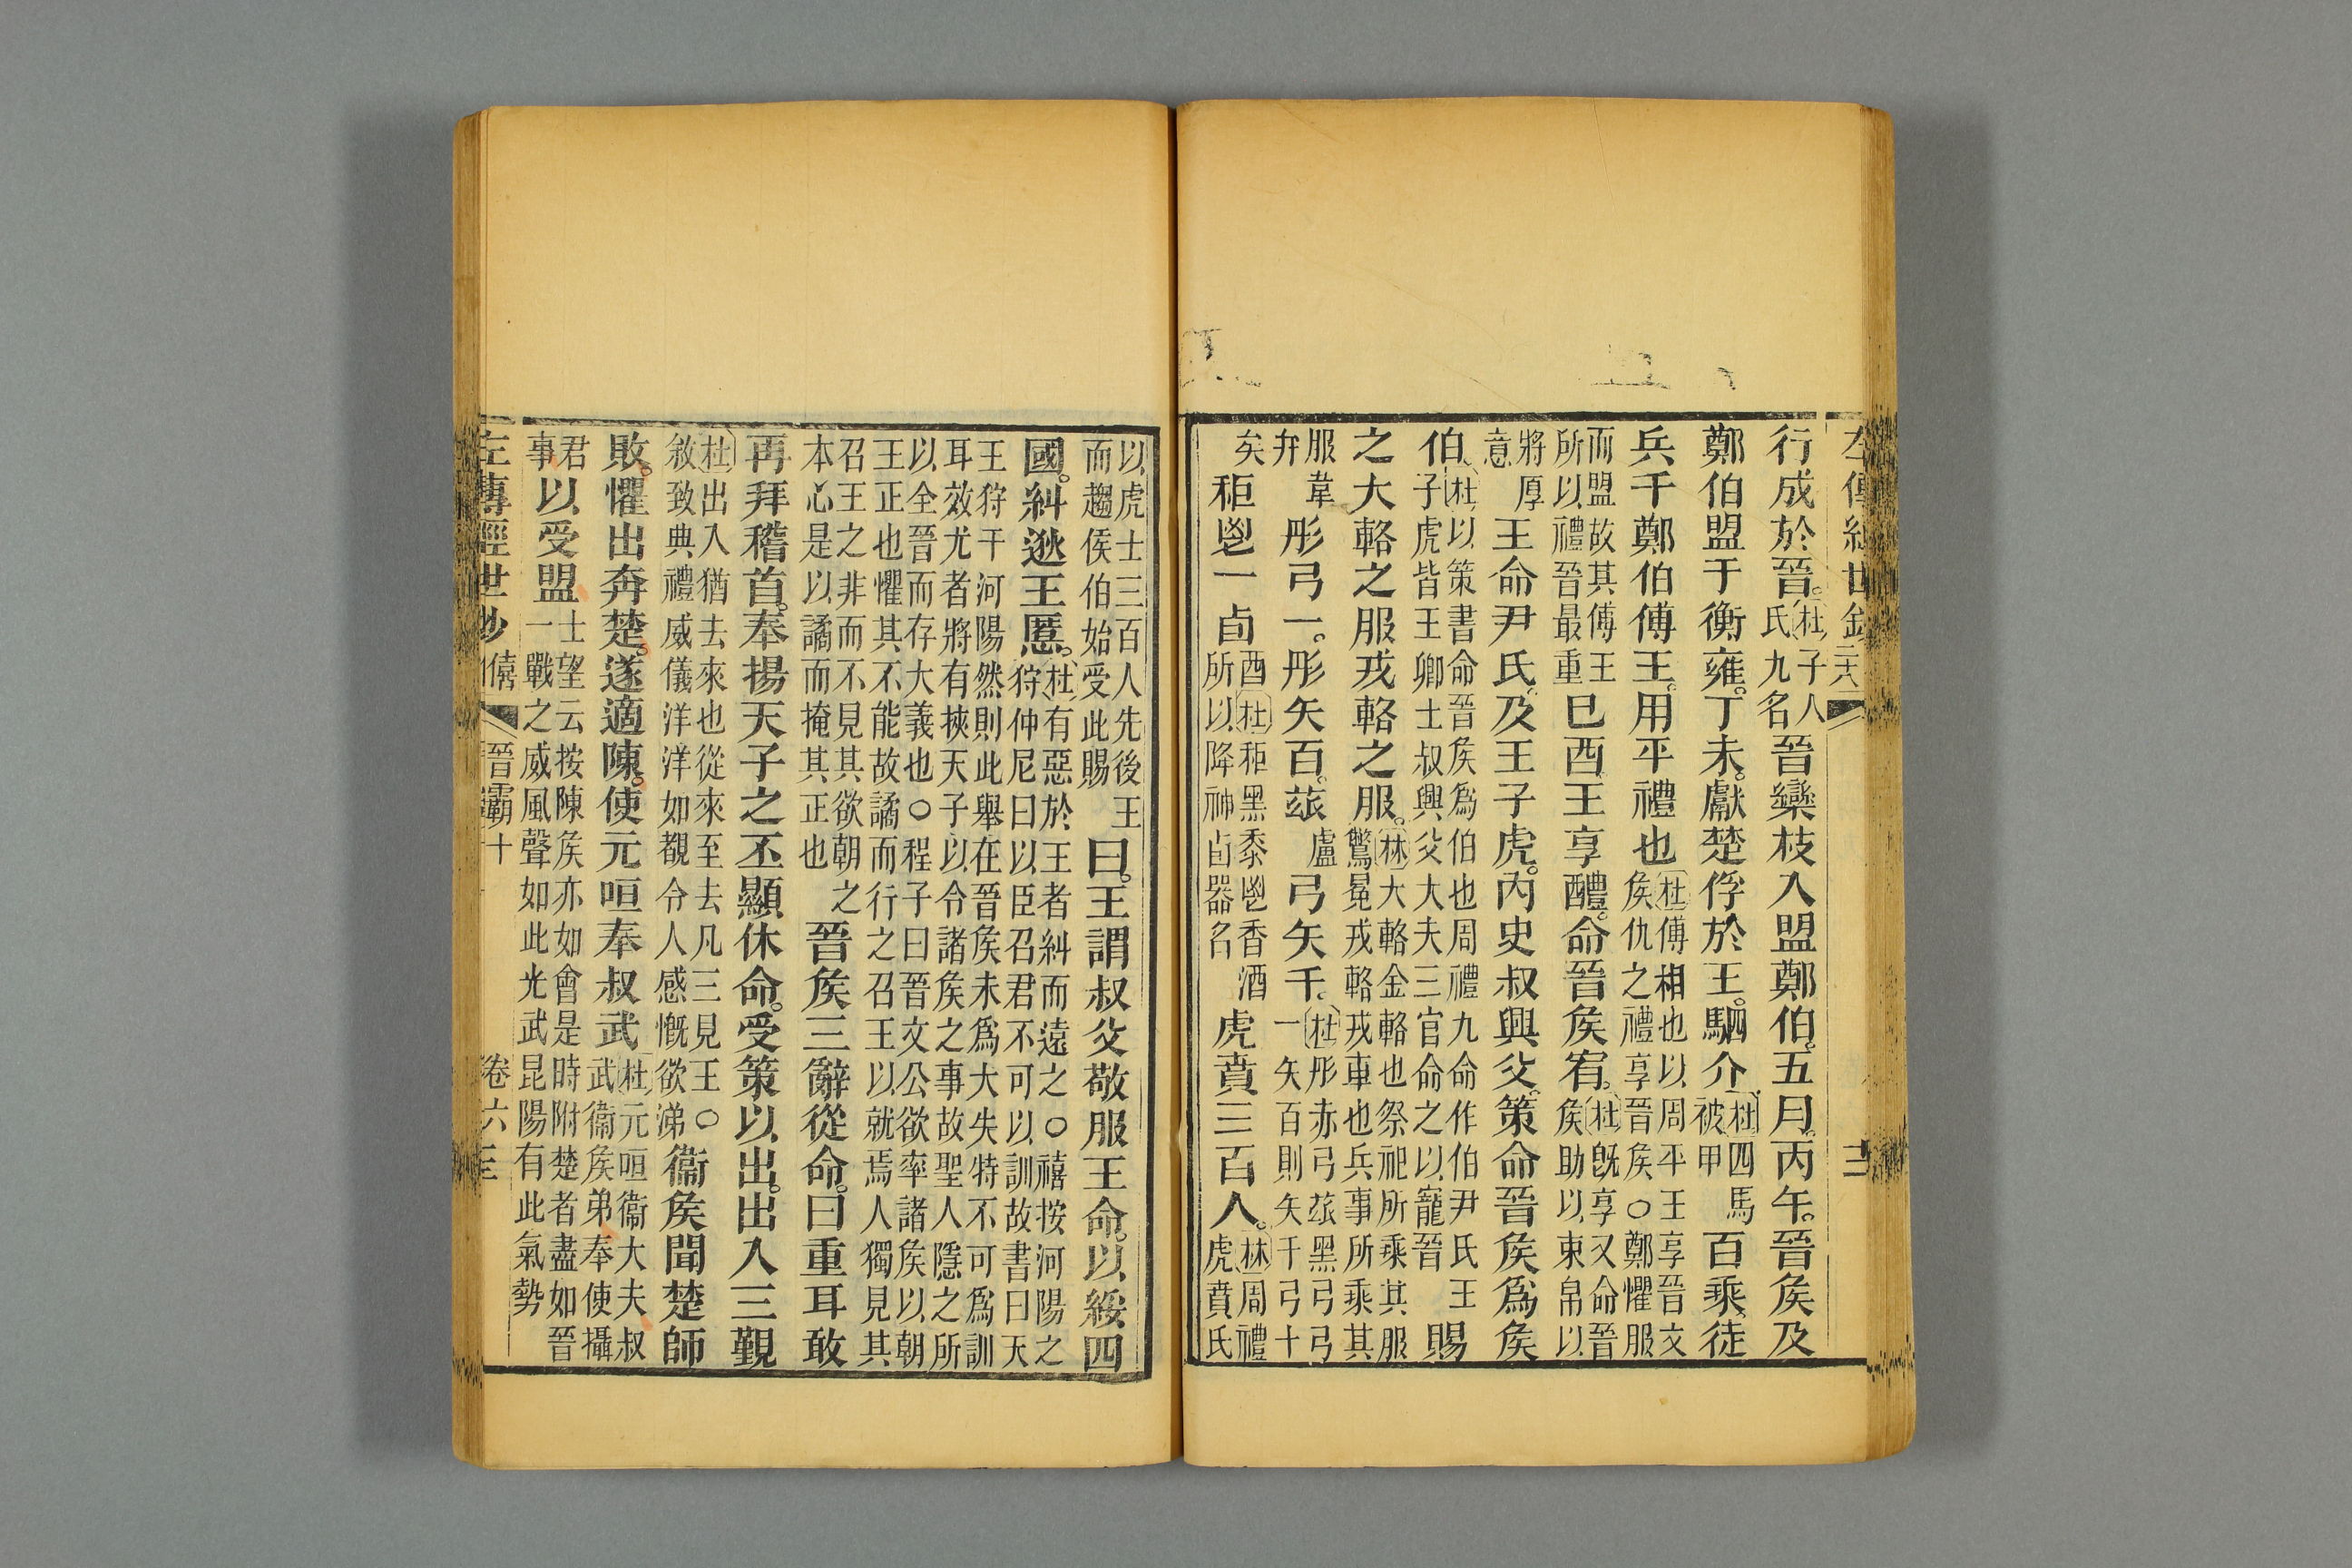 行成於晉。杜子人氏九名晉欒枝入盟鄭伯。五月。丙午。晉矦及
鄭伯盟于衡雍。丁未。獻楚俘於王。駟介、杜四馬被甲百乘、徒
兵千鄭伯傅王。用平禮也杜傅相也以周平王享晉文矦仇之禮享晉矦○鄭懼服
而盟故其傅王所以禮晉最重巳酉王享醴。命晉矦宥。杜旣享又命晉矦助以束帛以
將厚意王命尹氏。及王子虎。內史叔興父。策命晉矦爲矦
伯、杜以策書命晉矦爲伯也周禮九命作伯尹氏王子虎皆王卿士叔興父大夫三官命之以寵晉賜
之大輅之服戎輅之服。林大輅金輅也祭祀所乘其服鷩冕戎輅戎車也兵事所乘其
服韋弁彤弓一。彤矢百。玈盧弓矢千。杜彤赤弓玈黑弓弓一矢百則矢千弓十
矣秬鬯一卣酉杜秬黑黍鬯香酒所以降神卣器名虎賁三百人。林周禮虎賁氏
以虎士三百人先後王而趨侯伯始受此賜曰。王謂叔父敬服王命。以綏四
國。糾逖王慝。杜有惡於王者糾而遠之○禧按河陽之狩仲尼曰以臣召君不可以訓故書曰天
王狩于河陽然則此舉在晉矦未爲大失特不可爲訓耳效尤者將有挾天子以令諸矦之事故聖人隱之所
以全晉而存大義也○程子曰晉文公欲率諸矦以朝王正也懼其不能故譎而行之召王以就焉人獨見其
召王之非而不見其欲朝之本心是以譎而掩其正也晉矦三辭從命。曰重耳敢
再拜稽首。奉揚天子之丕顯休命。受策以出。出入三覲
杜出入猶去來也從來至去凡三見王○敘致典禮威儀洋洋如覩令人感慨欲涕衞矦聞楚師
敗。懼出奔楚。遂適陳。使元咺奉叔武杜元咺衞大夫叔武衞矦弟奉使攝
君事以受盟士望云按陳矦亦如會是時附楚者盡如晉一戰之威風聲如此光武昆陽有此氣勢
左傳經世鈔 僖 晉霸十 卷六